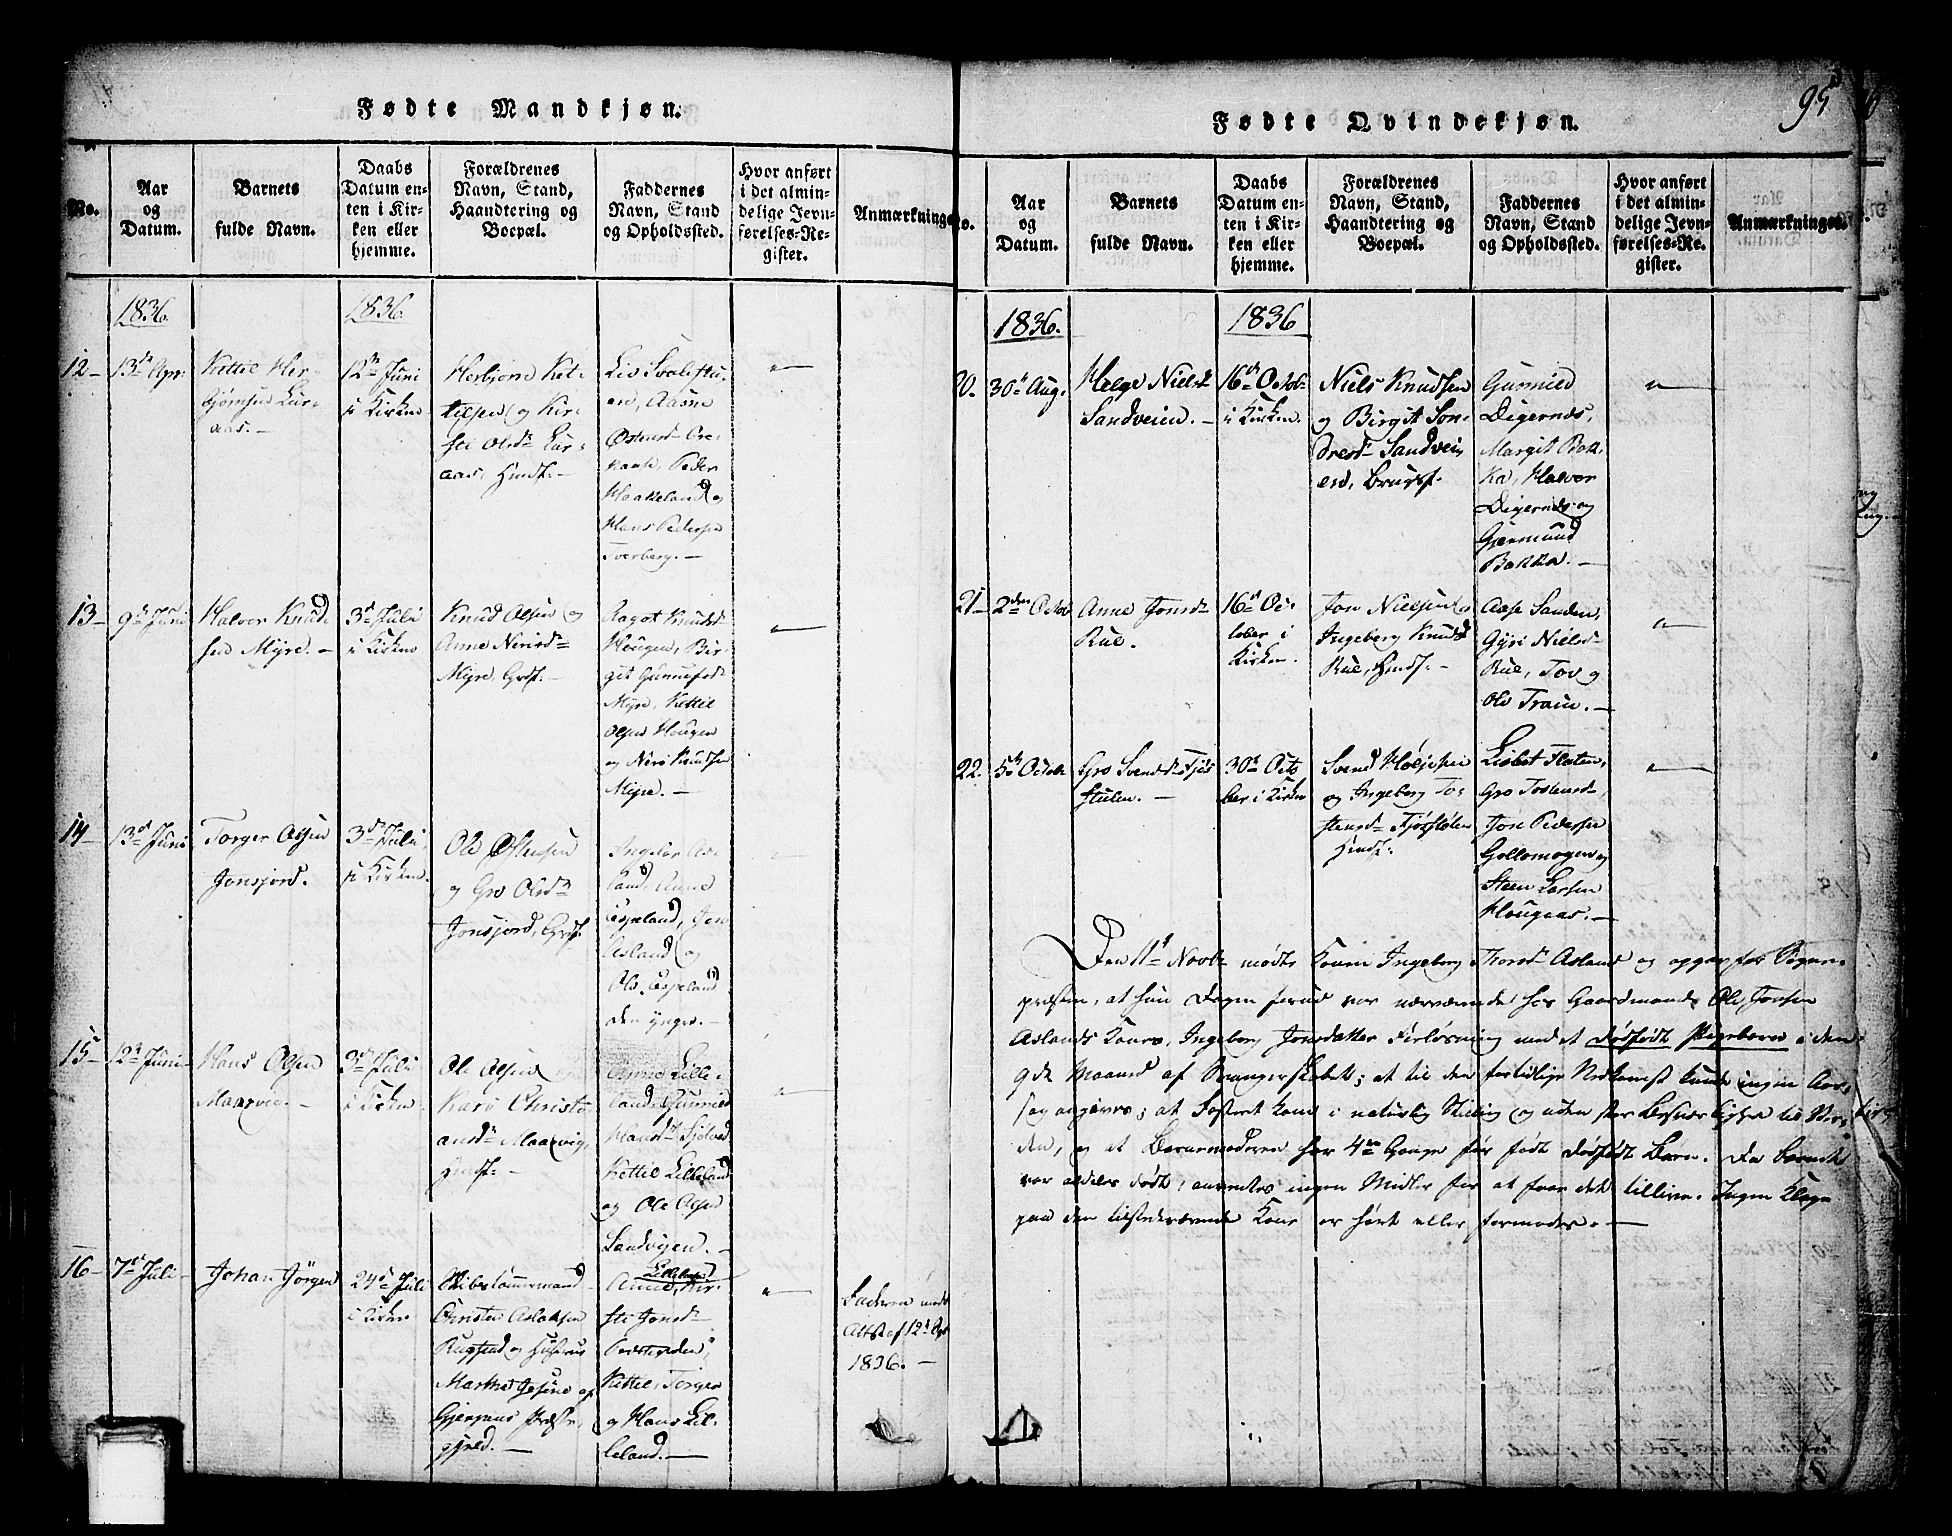 Fødte Mandkjøn.
No.
Aar
og
Datum.
Barnets
fulde Navn.
Daabs
Datum en-
ten i Kir-
ken eller
hjemme.
Forældrenes
Navn, Stand,
Haandtering og
Boepæl.
Faddernes
Navn, Stand
og Opholdssted.
Hvor anført
i det almin-
delige Jevn-
førelses-Re-
gister.
Anmærkninger
1836.
1836.
12
13de Apr:
Kittil Her-
bjørnsen Lur-
aas.
12te Juni
i Kirken
Herbjørn Ket-
tilsen og Kir-
sti Olsdr Lur-
aas, Huusf.
Liv
Aasne
Østensdr
Peder
Haakeland og
Hans Pedersen
Tverberg.
13
9de Juni
Halvor Knud-
sen Myre.
3d Juli
i Kirken
Knud Olsen og
Anne Nerisdr
Myre, Grdf.
Aagot Knudsd
Hougen, Bir-
git Gunnufsdr
Myre, Kettil
Olsen Hougen
og Neri Knudsen
Myre.
14
13de Juni
Torger Olsen
Jonsjord.
3de Juli
i Kirken.
Ole Østensen
og Gro Olsdr
Jonsjord, Grdf.
Ingebor As-
land, Anne
Espeland, Jon
Asland og
Ole Espeland
den yngre.
15
12te Juni
Hans Olsen
Maarvig.
3de Juli
i Kirken
Ole Olsen og
Kari Christi-
ansdr Maarvig,
Huusf.
Anne Lille-
land, Gunnild
Hansdr
Kettil Lilleland
og Ole Olsen
Sandvigen.
16
7de Juli
Johan Jörgen
24de Juli
i Kirken
Skibstömmermand
Christen Aslaksen
Rugstad og Hustrue
Martha Jesine af
Gjerpens Præste-
gjeld.
Lilleland
Anne, Kir-
sti Jonsdr
Kittil, Torger
og Hans Lil-
leland.
Faderen
Attst af 12te
1836.
95
Fødte Qvindekjøn.
No.
Aar
og
Datum.
Barnets
fulde Navn.
Daabs
Datum en-
ten i Kir-
ken eller
hjemme.
Forældrenes
Navn, Stand,
Haandtering og
Boepæl.
Faddernes
Navn, Stand
og Opholdssted.
Hvor anført
i det almin-
delige Jevn-
førelses-Re-
gister.
Anmærkninger.
1836.
1836
20.
30te Aug.
Helge Nielsd
Sandveien.
16de Octob.
i Kirken.
Niels Knudsen
og Birgit Son-
dresdr Sandvei-
en, Brugsf.
Gunnild
Digernæs,
Margit Bak-
ka, Halvor
Digernæs og
Gjermund
Bakka.
21
2den Octob
Anne Jonsdr
Rue.
16de Oc-
tober i
Kirken.
Jon Nielsen og
Ingeborg Knudsd
Rue, Huusf.
Aase Sanden,
Gyri Nielsdr
Rue, Tov og
Ole Traen.
22.
5te Octob
Gro Svendsdr Fjös-
stulen.
30te Octo
ber i Kirken
Svend Høljesen
og Ingeborg To-
stensdr Fjösstølen
Huusf.
Lisbet Flaten,
Gro Tostensdr,
Jon Pedersen
Gollomogen og
Steen Larsen
Hougaas.
Den 11te Novbr mødte Konen Ingeborg Thorsdr Asland og opgav for Sogne-
præsten, at hun Dagen forud var nærværende hos Gaardmands Ole Jonsen
Aslands Kone, Ingeborg Jonsdatter Forløsning med et dødfødt Pigebarn i den
9de Maaned af Svangerskabet; at til den fortidlige Nedkomst kunde ingen Aar-
sag angives; at Fosteret kom i naturlig Stilling og uden stor Besværlighed til Ver-
den, og at Barnemoderen har 4re Gange før født dødfødt Børn. Da Barnet
var aldeles dødt, anvendtes ingen Midler for at faae det tillive. Ingen Klage
paa den tilstedeværende Kone er hørt eller formodes.